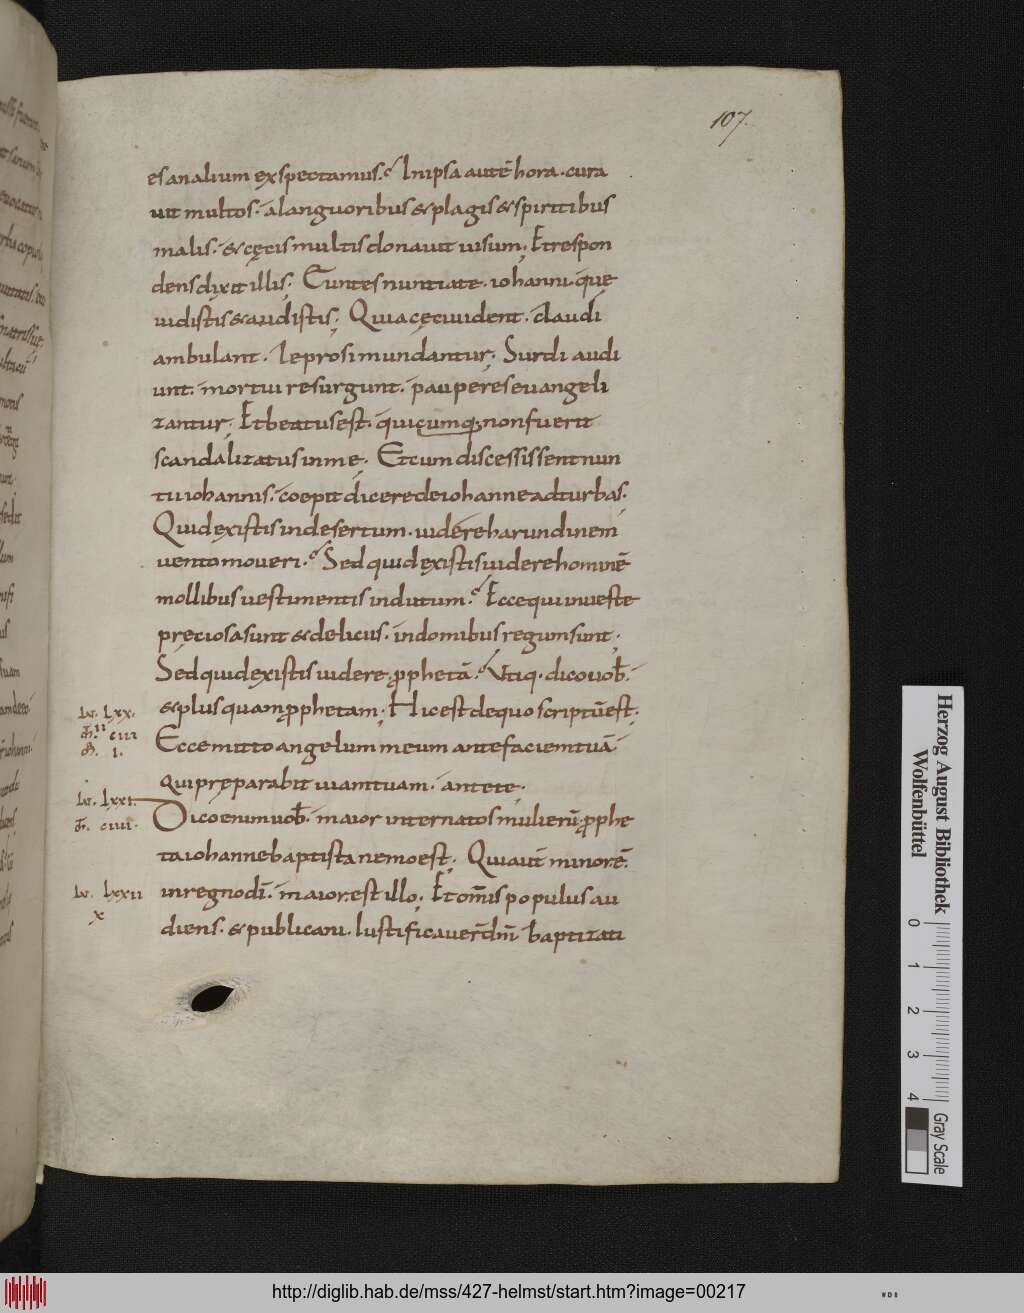 107.
es an alium exspectamus. In ipsa autē hora. cura
uit multos. a languoribus & plagis & spiritibus
malis. & cęcis multis donauit uisum. Et respon
dens dixit illis. Euntes nuntiate. iohanni. quę
uidistis & audistis. Quia cęci uident. claudi
ambulant. leprosi mundantur. Surdi audi
unt. mortui resurgunt. pauperes euangeli
zantur. Et beatus est. quicumq; non fuerit
scandalizatus in me. Et cum discessissent nun
tii iohannis. coepit dicere de iohanne ad turbas.
Quid existis in desertum. uidere harundinem
uento moueri. Sed quid existis uidere hominē
mollibus uestimentis indutum. Ecce qui in ueste
preciosa sunt & deliciis. in domibus regum sunt.
Sed quid existis uidere. ꝓphetā. Vtiq. dico uob̄.
& plus quam ꝓphetam. Hic est de quo scriptū est.
Ecce mitto angelum meum ante faciem tuā
qui pręparabit uiam tuam. ante te.
Dico enim uob̄. maior inter natos mulierū. ꝓphe
ta iohanne baptista nemo est. Qui aut̄ minor ē.
in regno dī. maior. est illo. Et om̄is populus au
diens. & publicani. Iustificauer̄ dm̄ baptizati
lu. lxx.
ciii
I.
lu. lxxi.
ciiii.
lu. lxxii
x
Herzog August Bibliothek
Wolfenbüttel
0 1 2 3 4
Gray Scale
http://diglib.hab.de/mss/427-helmst/start.htm?image=00217